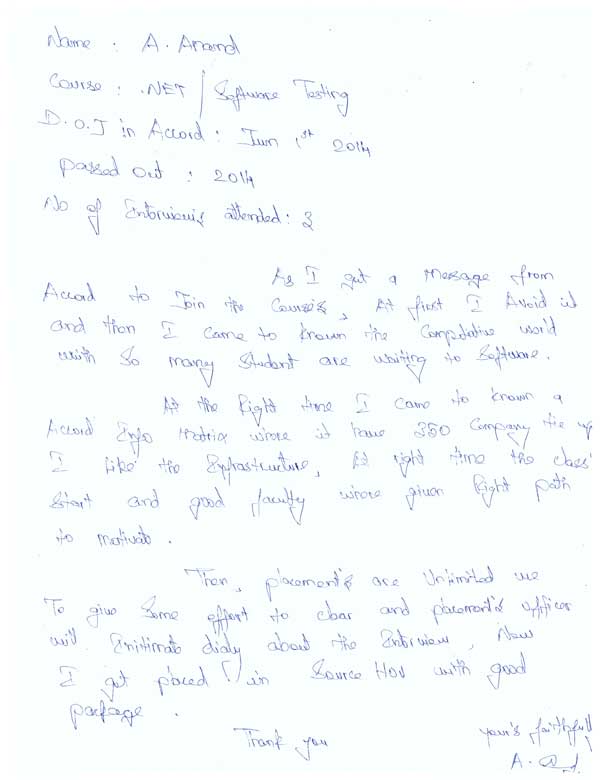 Name : A. Anand
Course : .NET / Software Testing
D.O.J in Accord : Jun 1st 2014
Passed Out : 2014
No of Interviewis attended : 3
As I got a Message from
Accord to Join the Courses, At first I Avoid it
and then I came to known the Competative world
with So many Student are waiting to Software.
At the Right time I came to known a
Accord Info Matrix where it have 350 Company tie up
I Like the Infrastructure, At right time the class
Start and good faculty where given Right path
to motivate.
Then, placement's are Unlimited we
To give Some effort to clear and placement's officer
will diely about the Interview, Now
I got placed in Source HOV with good
package.
Thank you
your's faithfully
A.